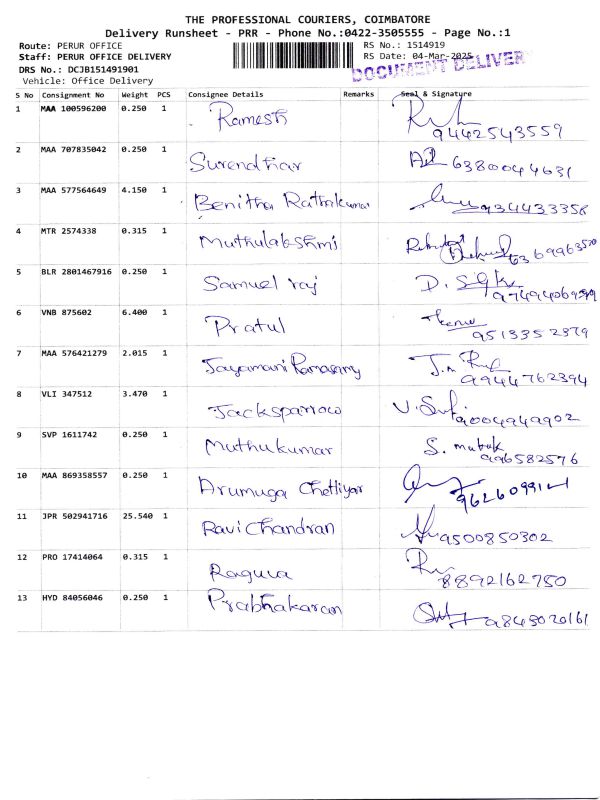 THE PROFESSIONAL COURIERS, COIMBATORE
Delivery Runsheet - PRR - Phone No.:0422-3505555 - Page No.:1
Route: PERUR OFFICE RS No.: 1514919
Staff: PERUR OFFICE DELIVERY RS Date: 04-Mar-2025
DOCUMENT DELIVER
DRS No.: DCJB151491901
Vehicle: Office Delivery
S No Consignment No Weight PCS Consignee Details Remarks Seal & Signature
1 MAA 100596200 0.250 1 Ramesh
9442543559
2 MAA 707835042 0.250 1 Surendhar 6380044631
3 MAA 577564649 4.150 1 Benitha Rathakumar 934433358
4 MTR 2574338 0.315 1 Muthulakshmi 6369963520
5 BLR 2801467916 0.250 1 Samuel raj D.
6 VNB 875602 6.400 1 Pratul
9513352379
7 MAA 576421279 2.015 1 Jayamani Ramasamy
9944762394
8 VLI 347512 3.470 1 Jacksparrow 9004949902
9 SVP 1611742 0.250 1 Muthukumar S.
996582576
10 MAA 869358557 0.250 1 Arumuga Chettiyar
11 JPR 502941716 25.540 1 Ravi Chandran 9500850302
12 PRO 17414064 0.315 1
8892162750
13 HYD 84056046 0.250 1 Prabhakaran
9845020161